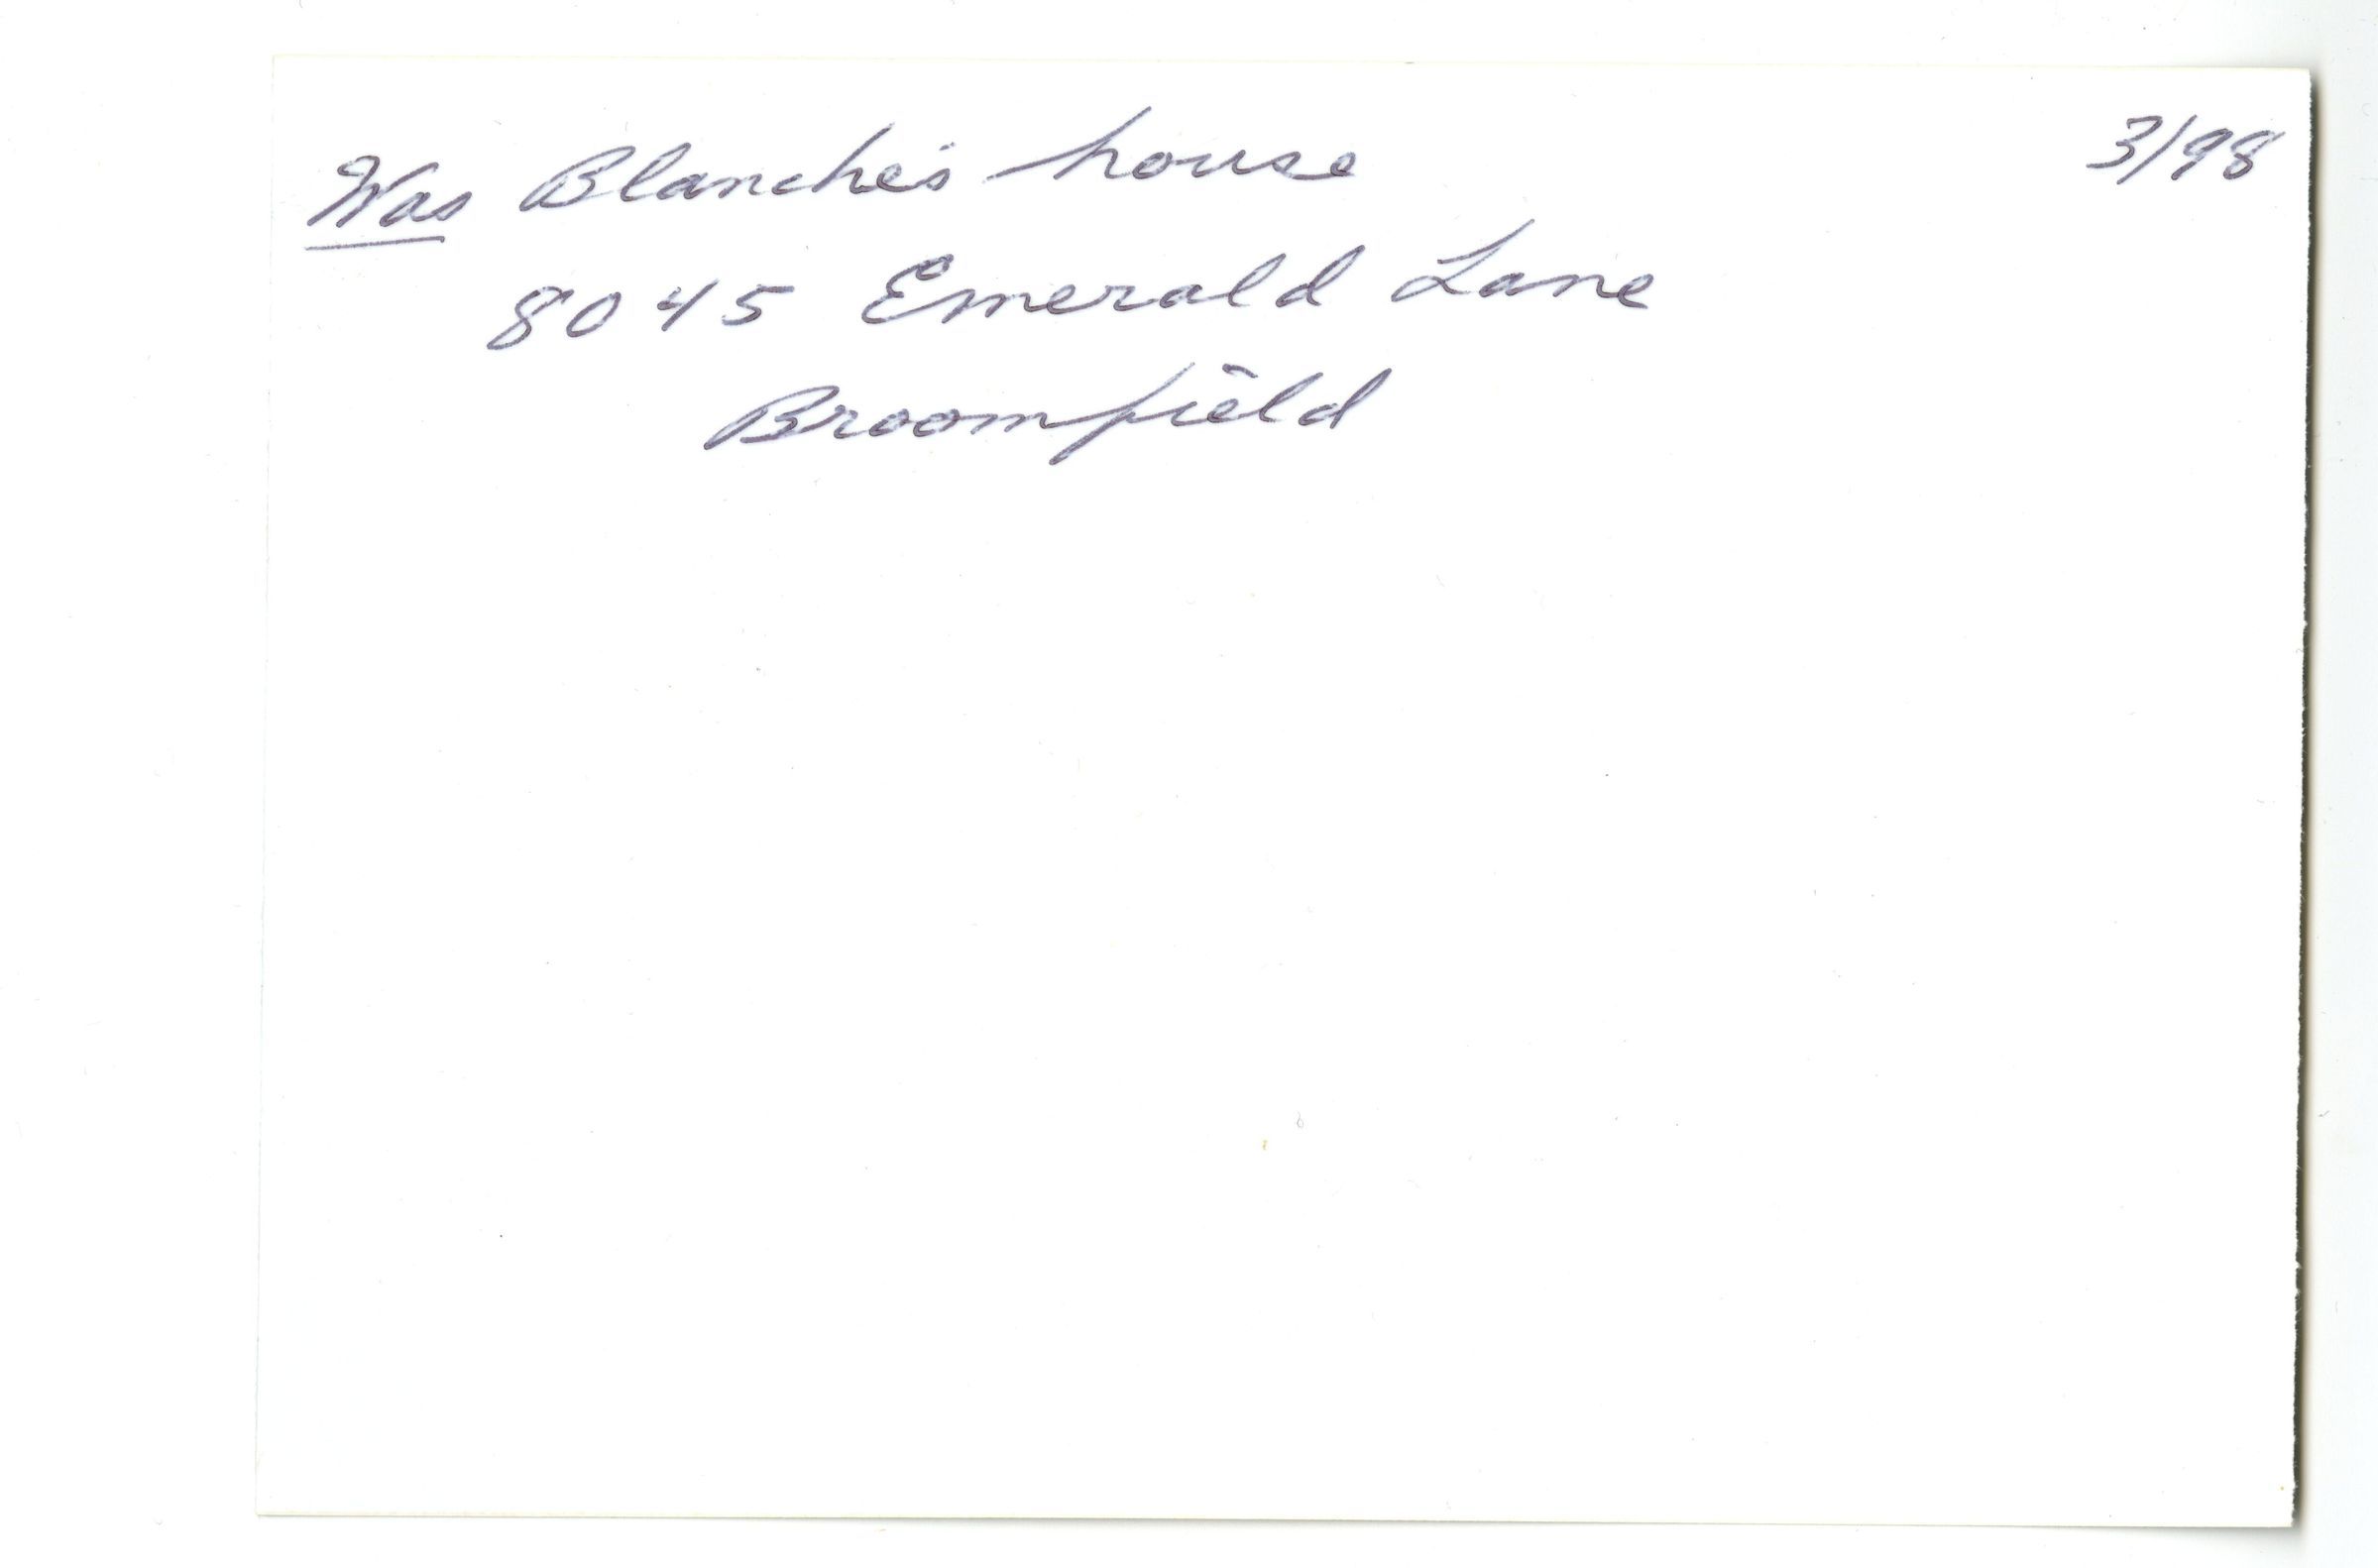 Was Blanche's house 3/98
8045 Emerald Lane
Broomfield